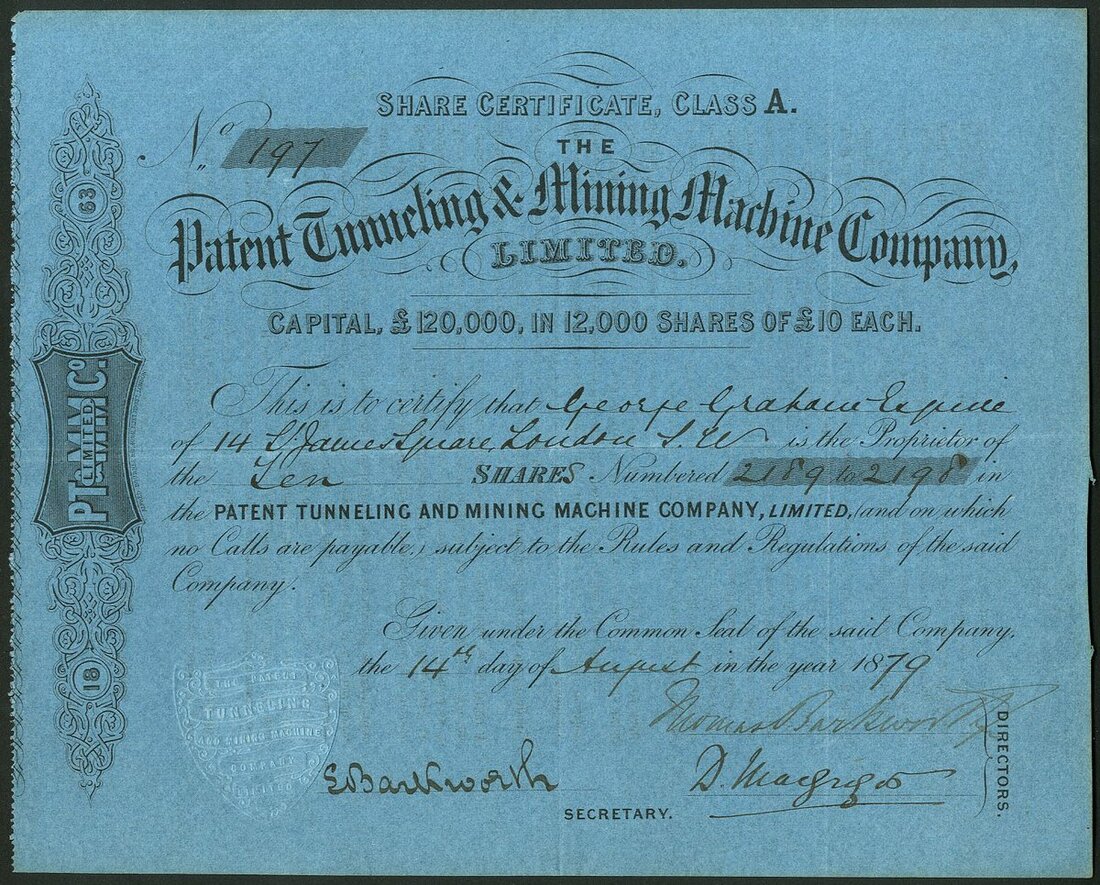 SHARE CERTIFICATE, CLASS A.
No. 197
THE
Patent Tunneling & Mining Machine Company,
LIMITED.
CAPITAL, £120,000, IN 12,000 SHARES OF £10 EACH.
This is to certify that George Graham Esquire
of 14 St James Square, London S.W is the Proprietor of
the Ten SHARES Numbered 2189 to 2198 in
the PATENT TUNNELING AND MINING MACHINE COMPANY, LIMITED, (and on which
no Calls are payable,) subject to the Rules and Regulations of the said
Company.
Given under the Common Seal of the said Company,
the 14th day of August in the year 1879
Thomas Barkworth
E Barkworth
D. Macgregor
DIRECTORS.
SECRETARY.
18 63
PT & MM Co.
LIMITED
THE PATENT
TUNNELING
AND MINING MACHINE
COMPANY
LIMITED